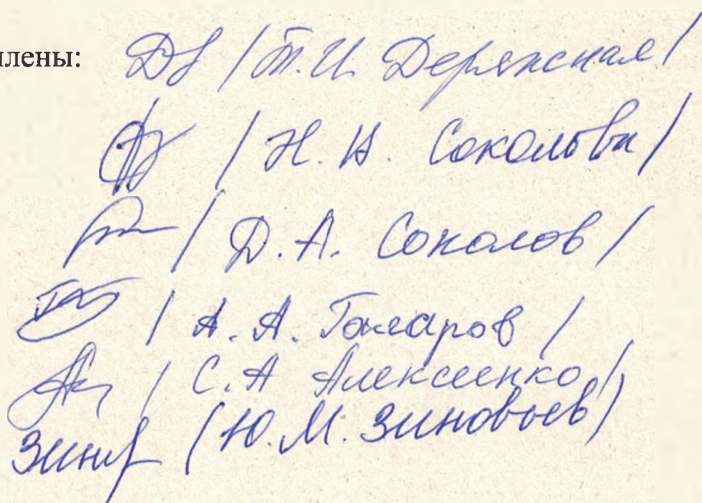 члены: /Т.И. Деряжная/
/Н.А. Соколова/
/Д.А. Соколов/
/А.А. Гагаров/
/С.А Алексеенко/
(Ю.М. Зиновьев)